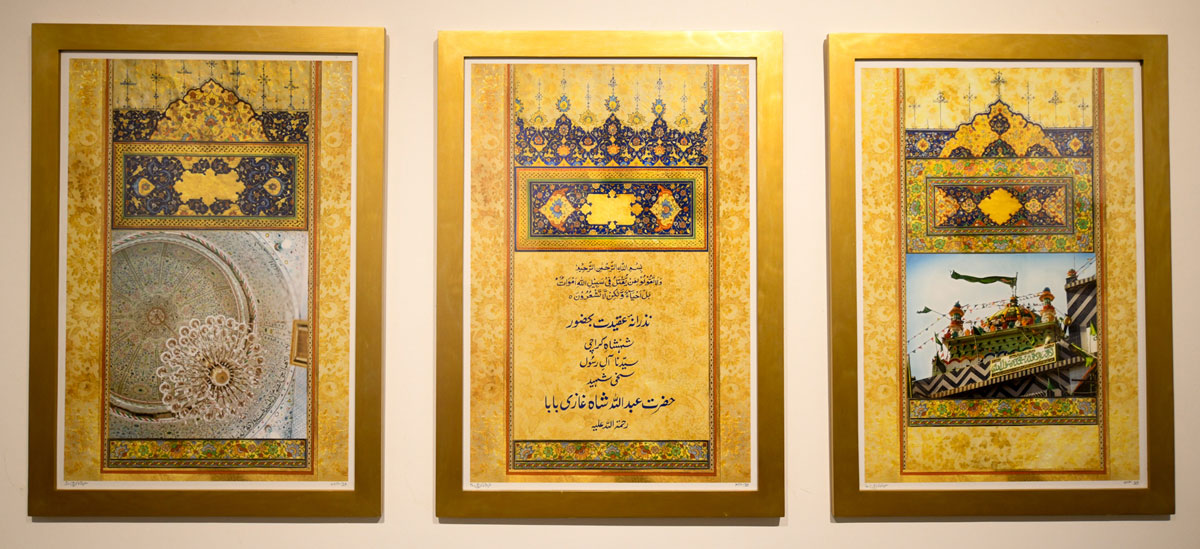 بِسْمِ اللهِ الرَّحْمٰنِ الرَّحِيْمِ
وَلَا تَقُوْلُوْا لِمَنْ يُّقْتَلُ فِيْ سَبِيْلِ اللهِ اَمْوَاتٌ ؕ
بَلْ اَحْيَآءٌ وَّلٰكِنْ لَّا تَشْعُرُوْنَ ۞
نذرانۂ عقیدت بحضور
شہنشاہِ کراچی
سیّدنا آلِ رسول
سخی شہید
حضرت عبداللہ شاہ غازی بابا
رحمۃ اللہ علیہ